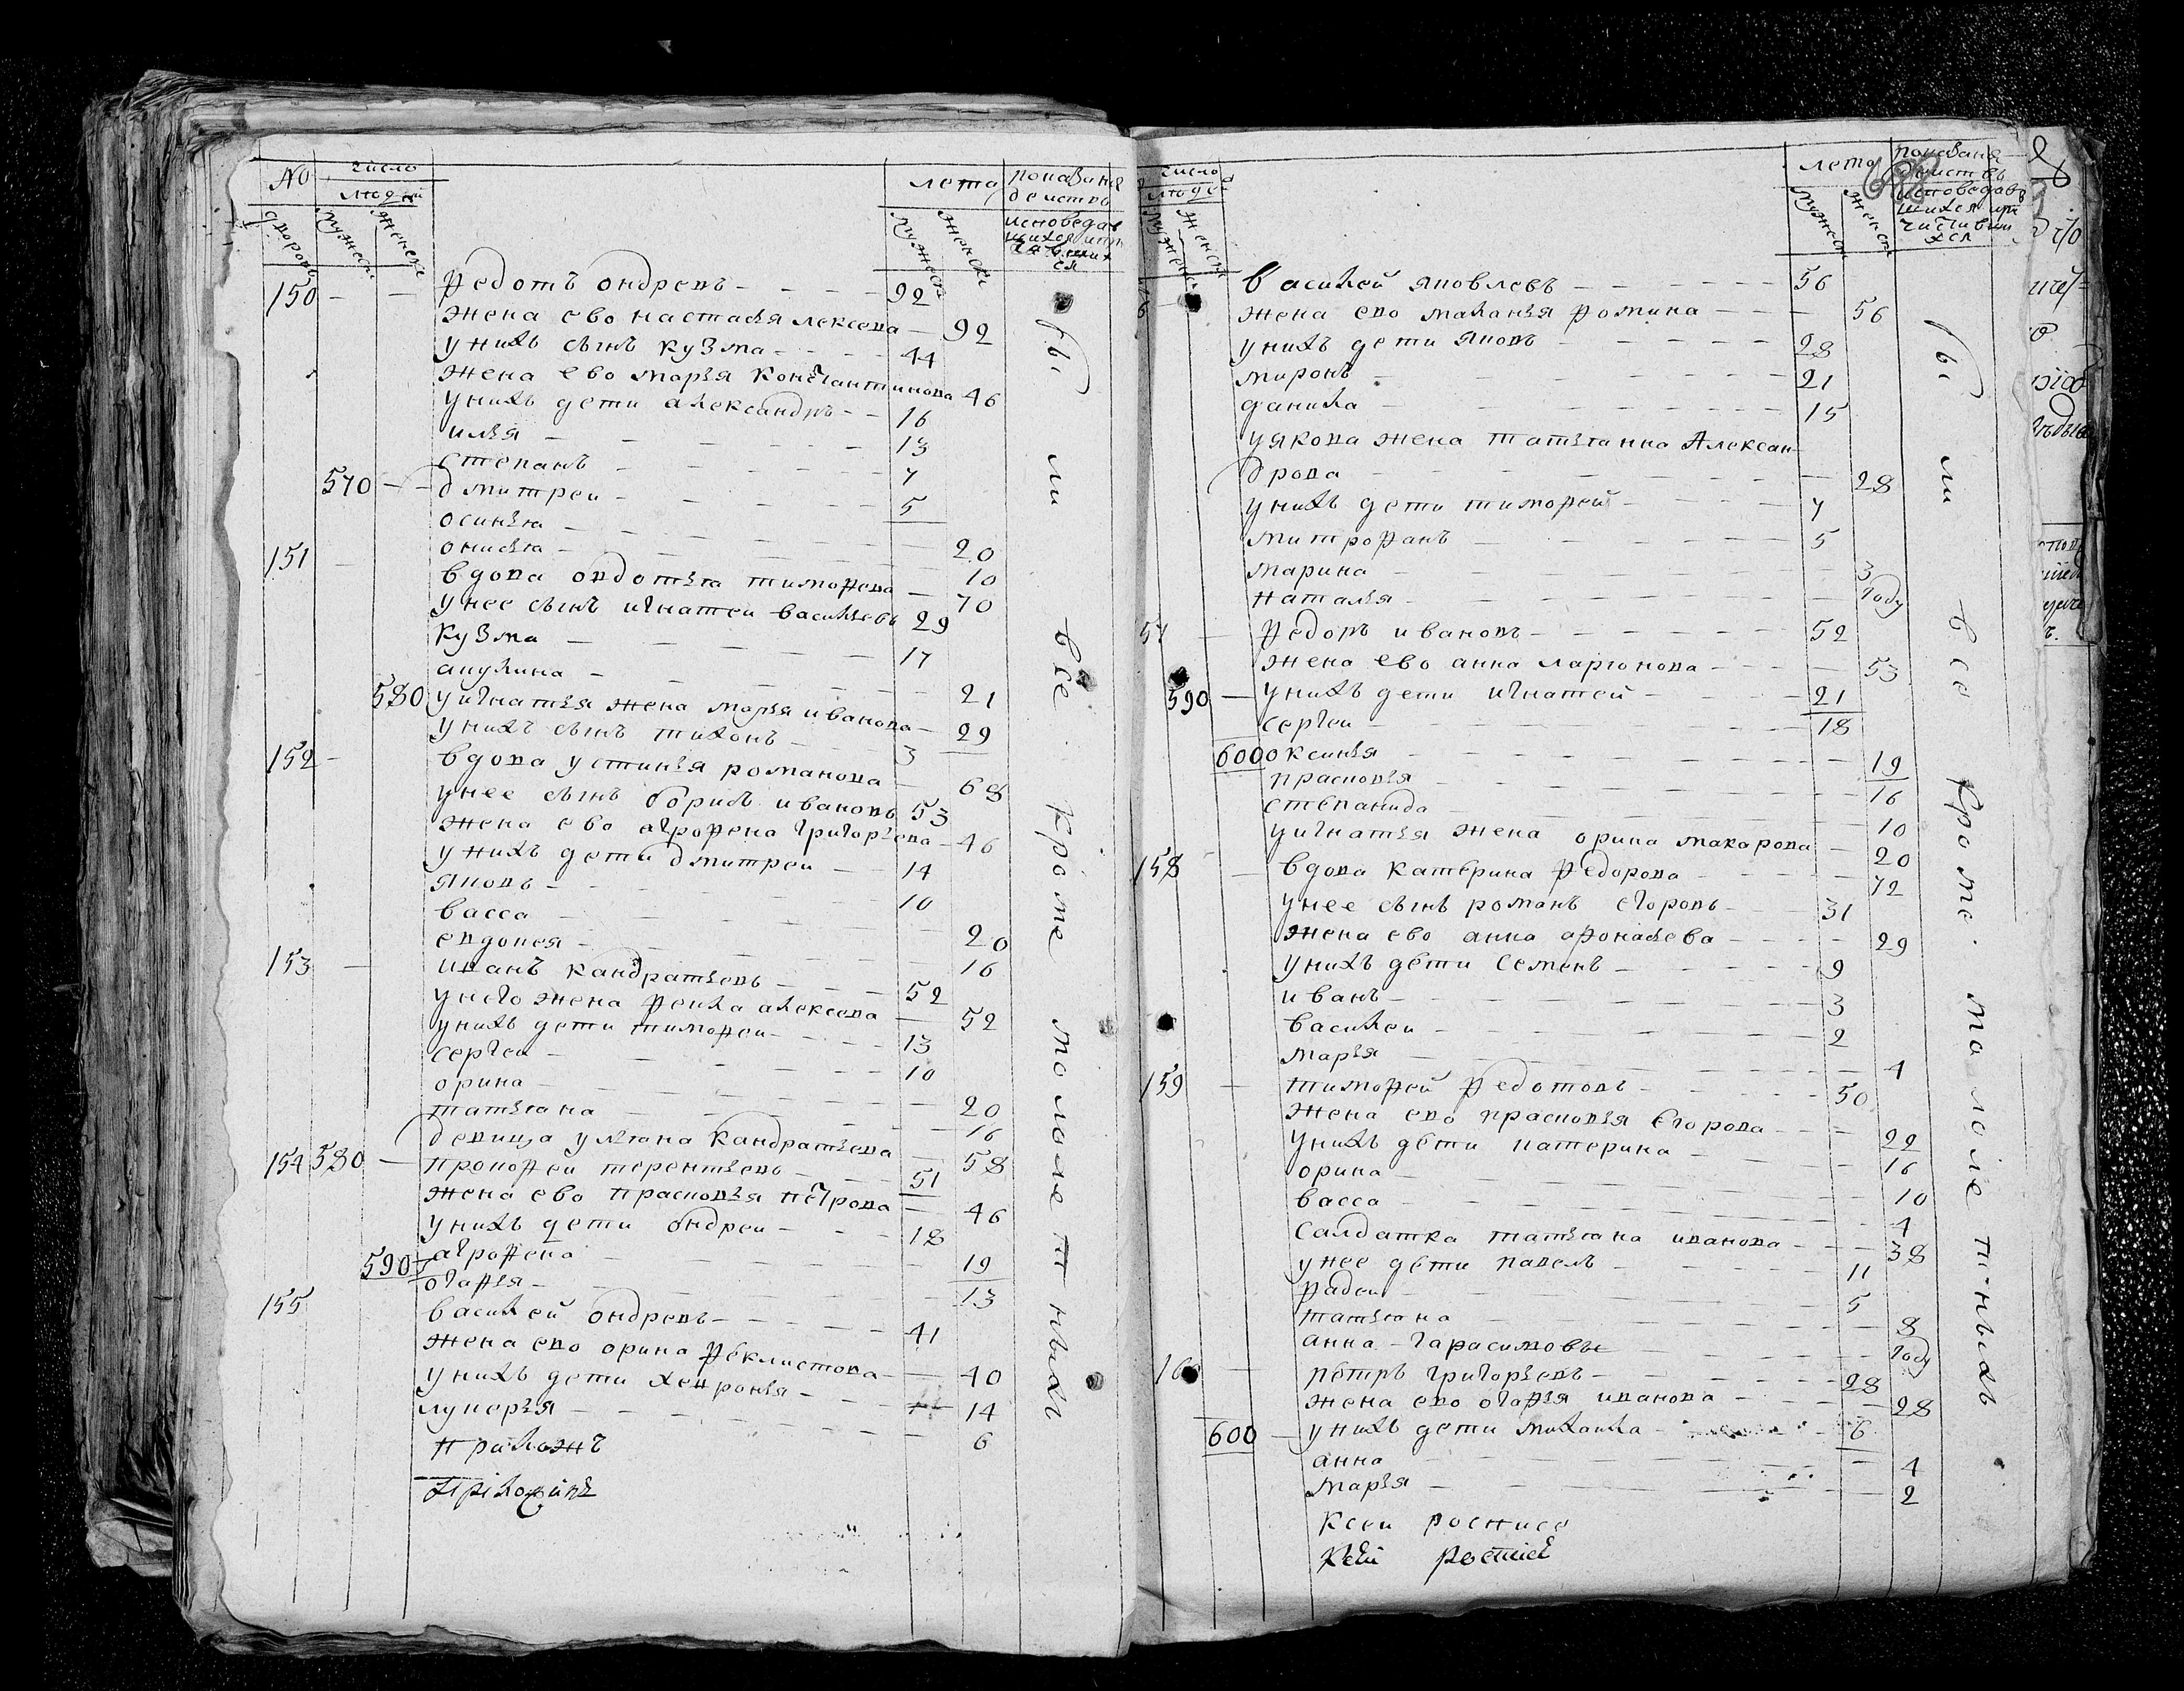 No число лета показание
людей действъ
дворовъ мужеск женска мужеск женски исповедав
шихся
ся
150 — — Федотъ ондревъ — 92
жена ево настасья лексеева — 92
унихъ сынъ кузма — 44
жена ево марья константинова 46
унихъ дети александръ — 16
илья — 13
степанъ — 7
570 — дмитреи — 5
осинья — 20
151 — онисья — 10
вдова овдотья тимофеева — 70
унее сынъ игнатеи васильевъ 29
кузма — 17
акулина — 21
580 уигнатья жена марья иванова — 29
унихъ сынъ тихонъ — 3
152 — вдова устинья романова — 68
унее сынъ борисъ ивановъ 53
жена ево агрофена григорьева — 46
унихъ дети дмитреи — 14
яковъ — 10
васса — 20
евдокея — 16
153 — иванъ кандратьевъ — 52
унего жена фекла алексеева — 52
унихъ дети тимофеи — 13
сергеи — 10
орина — 20
татьяна — 16
девица ульяна кандратьева — 58
154 580 — прокофеи терентьевъ — 51
жена ево прасковья петрова — 46
унихъ дети ондреи — 18
590 агрофена — 19
огафья — 13
155 василей ондревъ — 41
жена ево орина феклистова — 40
унихъ дети хевронья — 14
лукерья — 6
прихожъ
Прихожинъ
были все кроме малолетныхъ
число лета показание
людей действъ
мужеск женски мужеск женски исповедав
шихся
6 василей яковлевъ — 56
жена ево маланья фомина — 56
унихъ дети яковъ — 28
миронъ — 21
данила — 15
уякова жена татьянна Алексан
дрова — 28
унихъ дети тимофей — 7
митрофанъ — 5
марина — 3
наталья — году
57 — федоръ ивановъ — 52
жена ево анна ларионова — 53
590 — унихъ дети игнатей — 21
сергеи — 18
600 оксинья — 19
прасковья — 16
степанида — 10
уигнатья жена орина макарова — 20
158 — вдова катерина федорова — 72
унее сынъ романъ егоровъ — 31
жена ево анна афонасьева — 29
унихъ дети семенъ — 9
иванъ — 3
василеи — 2
марья — 4
159 — тимофей федотовъ — 50
жена ево прасковья егорова — 22
унихъ дети катерина — 16
орина — 10
васса — 4
салдатка татьяна иванова — 38
унее дети павелъ — 11
фадеи — 5
татьяна — 8
анна — гарасимовы — году
160 — петръ григорьевъ — 28
жена ево огафья иванова — 28
600 — унихъ дети михаила — 6
анна — 4
марья — 2
Ксеи росписе
Ксеи росписе
были все кроме малолетныхъ